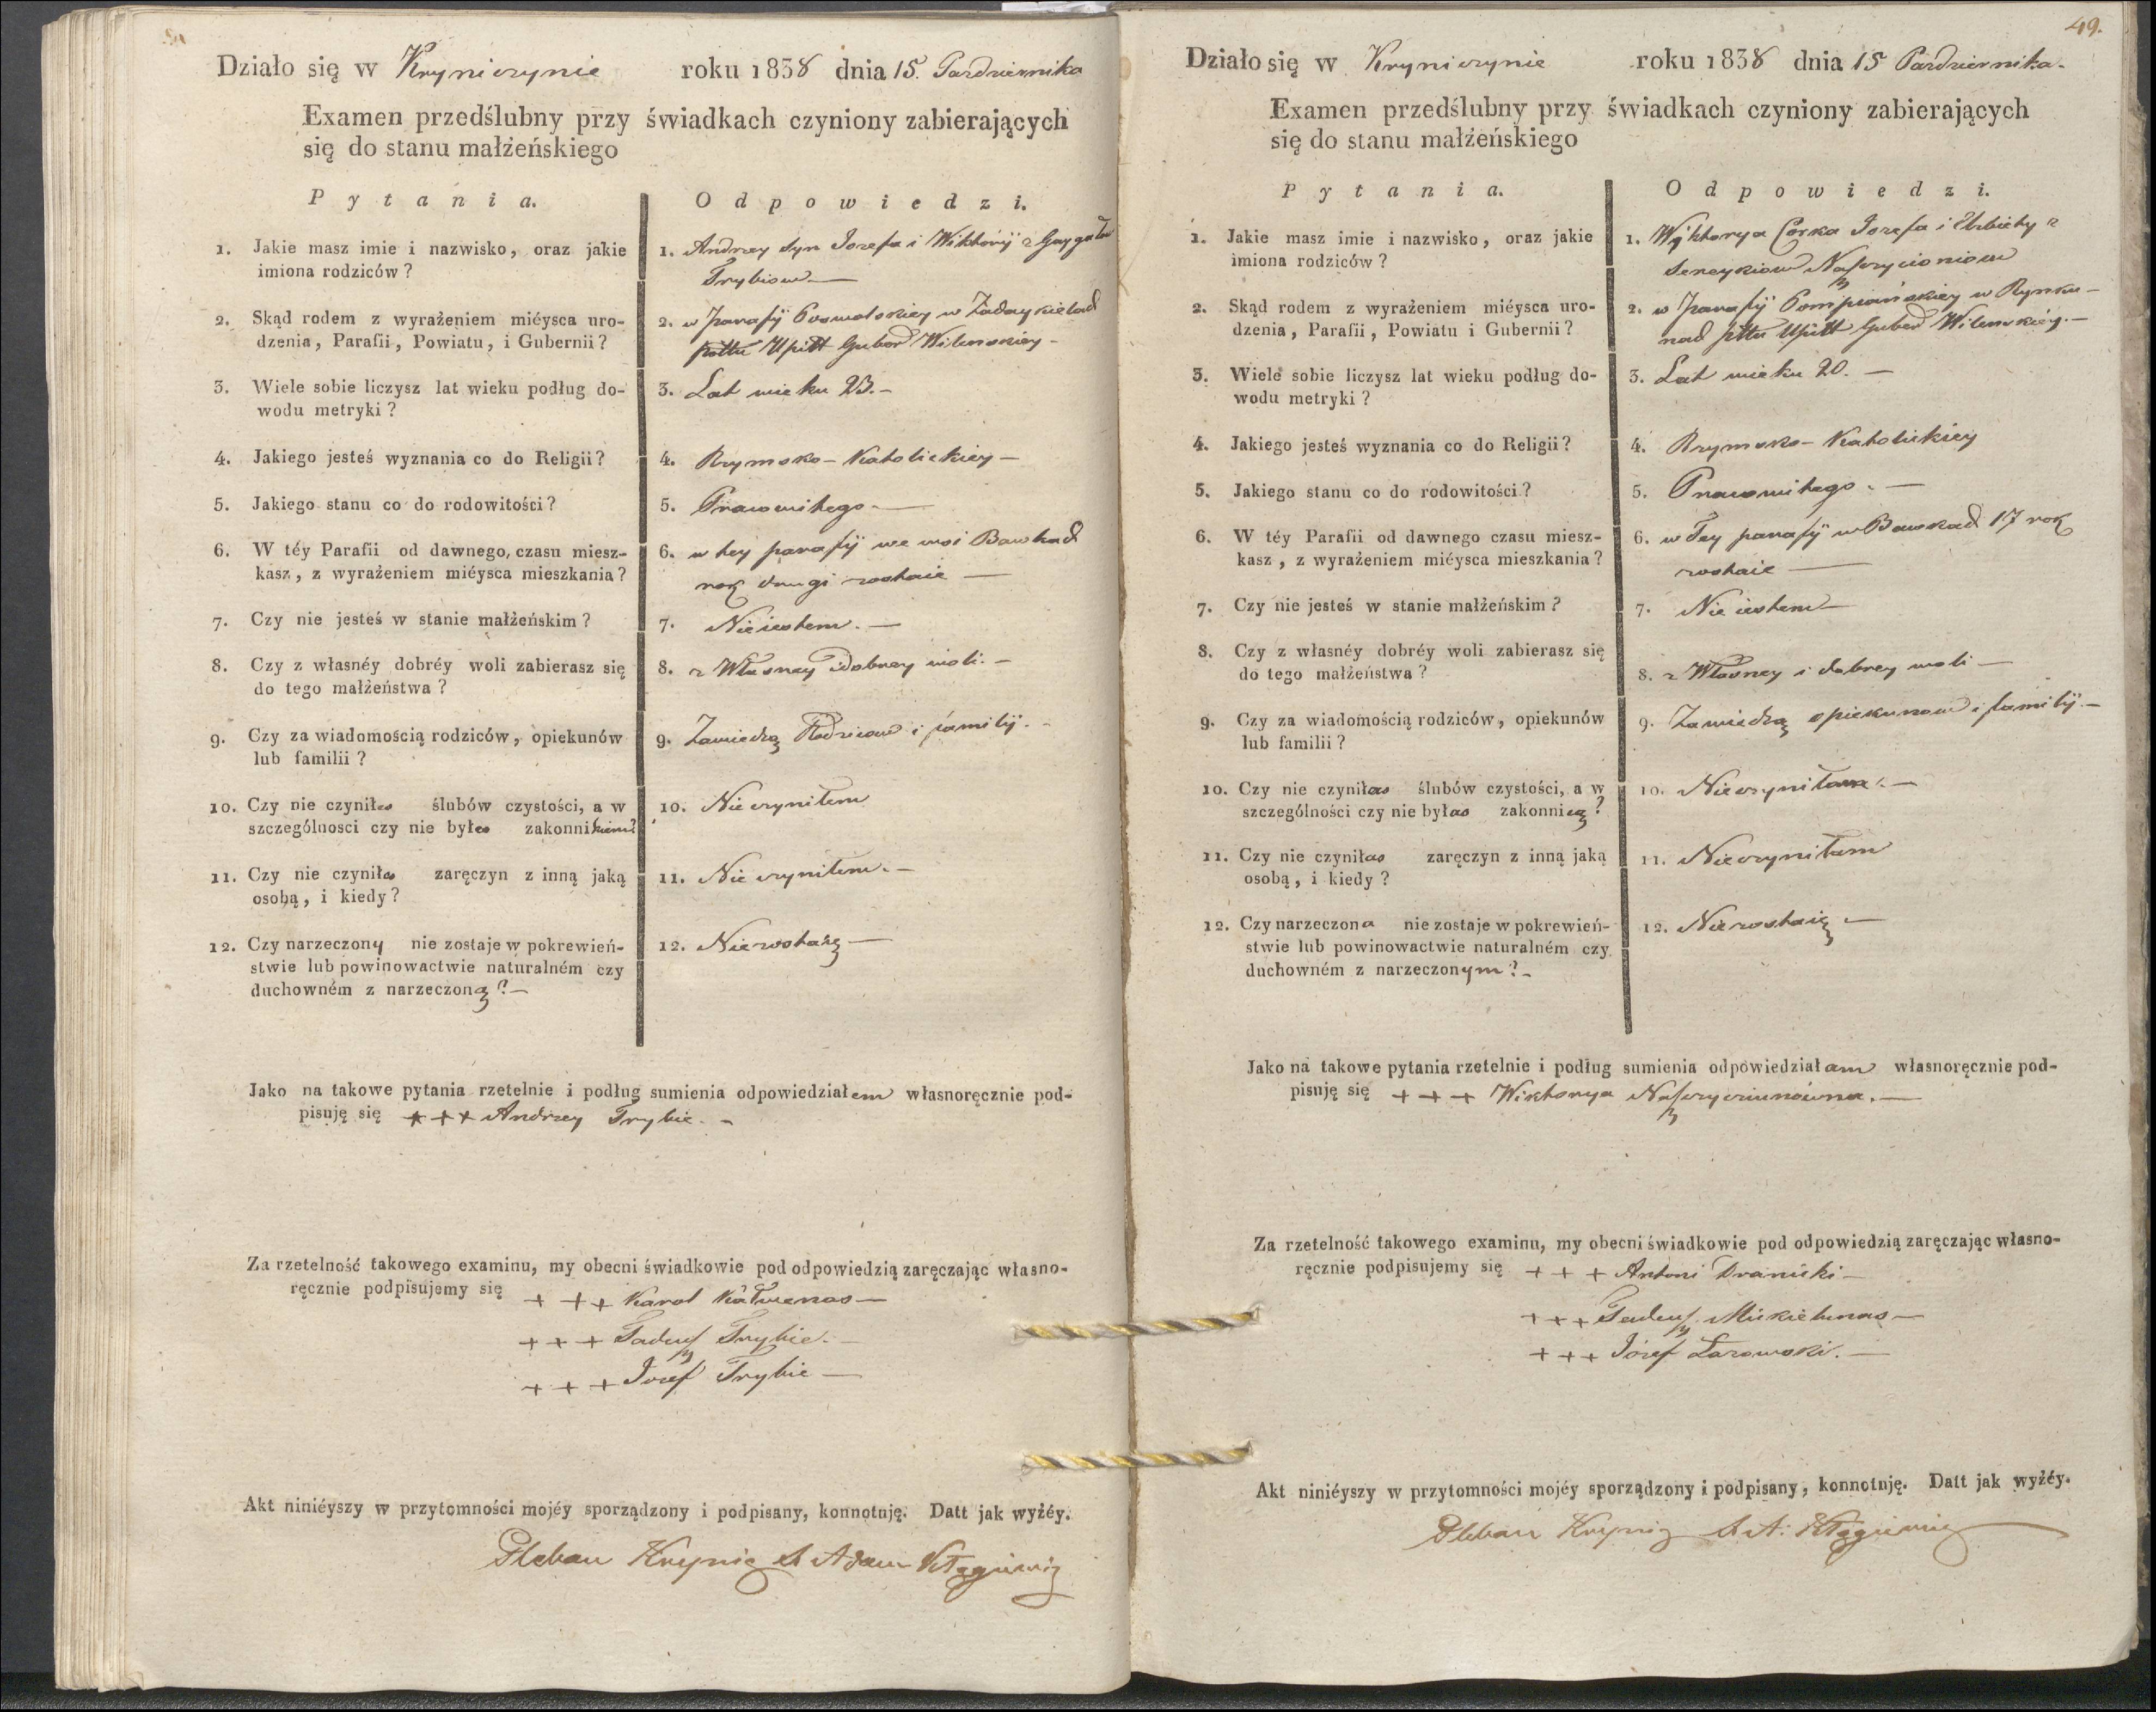 Działo się w Kryniczynie roku 1838 dnia 15. Pazdziernika
Examen przedślubny przy świadkach czyniony zabierających
się do stanu małżeńskiego
Pytania.
Odpowiedzi.
1. Jakie masz imie i nazwisko, oraz jakie
imiona rodziców?
1. Andrzey Syn Jozefa i Wiktoryi z Gaygałow
Trybiow
2. Skąd rodem z wyrażeniem miéysca uro-
dzenia, Parafii, Powiatu, i Gubernii?
2. w parafii Poswolskiey w
pottu Upitt Guber Wilenskiey
3. Wiele sobie liczysz lat wieku podług do-
wodu metryki?
3. Lat wieku 23.
4. Jakiego jesteś wyznania co do Religii?
4. Rzymsko-Katolickiey
5. Jakiego stanu co do rodowitości?
5. Prawowitego
6. W téy Parafii od dawnego, czasu miesz-
kasz, z wyrażeniem miéysca mieszkania?
6. w tey parafii we wsi
rok drugi zostaie
7. Czy nie jesteś w stanie małżeńskim?
7. Nie iestem.
8. Czy z własnéy dobréy woli zabierasz się
do tego małżeństwa?
8. z Własney i dobrey woli.
9. Czy za wiadomością rodziców, opiekunów
lub familii?
9. Zawiedzą Rodzicow i familij.
10. Czy nie czyniłes ślubów czystości, a w
szczególnosci czy nie byłes zakonnikiem?
10. Nie czyniłem
11. Czy nie czyniłes zaręczyn z inną jaką
osobą, i kiedy?
11. Nie czyniłem.
12. Czy narzeczony nie zostaje w pokrewień-
stwie lub powinowactwie naturalném czy
duchowném z narzeczoną?
12. Nie zostaię
Jako na takowe pytania rzetelnie i podług sumienia odpowiedziałem własnoręcznie pod-
pisuję się +++ Andrzey Trybie.
Za rzetelność takowego examinu, my obecni świadkowie pod odpowiedzią zaręczając własno-
ręcznie podpisujemy się +++ Karol
+++ Tadeusz Trybie.
+++ Jozef Trybie
Akt niniéyszy w przytomności mojéy sporządzony i podpisany, konnotuję. Datt jak wyżéy.
Pleban X Adam
49.
Działo się w Kryniczynie roku 1838 dnia 15 Pazdziernika.
Examen przedślubny przy świadkach czyniony zabierających
się do stanu małżeńskiego
Pytania.
Odpowiedzi.
1. Jakie masz imie i nazwisko, oraz jakie
imiona rodziców?
1. Wyktorya Corka Jozefa i Elzbiety z
2. Skąd rodem z wyrażeniem miéysca uro-
dzenia, Parafii, Powiatu i Gubernii?
2. w parafij Pompianskiey w Rynku
nad pttu Upitt Guber Wilenskiey.
3. Wiele sobie liczysz lat wieku podług do-
wodu metryki?
3. Lat wieku 20.
4. Jakiego jesteś wyznania co do Religii?
4. Rzymsko-Katolickiey
5. Jakiego stanu co do rodowitości?
5. Prawowitego.
6. W téy Parafii od dawnego czasu miesz-
kasz, z wyrażeniem miéysca mieszkania?
6. w Tey parafij w 17 rok
zostaie
7. Czy nie jesteś w stanie małżeńskim?
7. Nie iestem
8. Czy z własnéy dobréy woli zabierasz się
do tego małżeństwa?
8. z Własney i dobrey woli
9. Czy za wiadomością rodziców, opiekunów
lub familii?
9. Zawiedzą opiekunow i familij.
10. Czy nie czyniłas ślubów czystości, a w
szczególności czy nie byłas zakonnicą?
10. Nie czyniłam.
11. Czy nie czyniłas zaręczyn z inną jaką
osobą, i kiedy?
11. Nie czyniłam
12. Czy narzeczona nie zostaje w pokrewień-
stwie lub powinowactwie naturalném czy
duchowném z narzeczonym?
12. Nie zostaię
Jako na takowe pytania rzetelnie i podług sumienia odpowiedziałam własnoręcznie pod-
pisuję się +++ Wiktorya
Za rzetelność takowego examinu, my obecni świadkowie pod odpowiedzią zaręczając własno-
ręcznie podpisujemy się +++ Antoni
+++ Tadeusz Mikielunas
+++ Józef Łazowski.
Akt niniéyszy w przytomności mojéy sporządzony i podpisany, konnotuję. Datt jak wyżéy.
Pleban